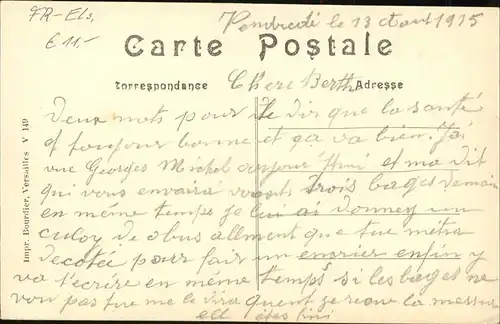 FR-Els,
€ 11.-
Vendredi le 13 Aout 1915
Carte Postale
Correspondance
Adresse
Chere Berthe
Deux mots pour te dir que la santé
et toujour bonne et ça va bien. J'ai
vue Georges Michel aujour'hui et ma dit
qui vous envaira vous trois bages demain
en même temps je lui ai donney un
culoy de obus allement que tu metra
de coté pour fair un encrier enfin y
va t'ecrire en même temps si les bages ne
von pas tu me le dira quent je recoi la messure
ell etes fini
Impr. Bourdier, Versailles V 149